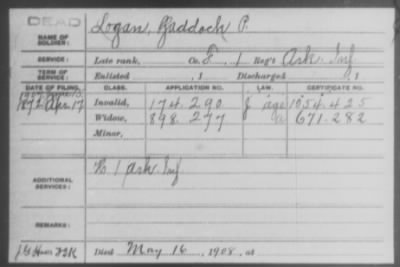 DEAD
NAME OF SOLDIER: Logan, Paddock P.
SERVICE: Late rank, Co. F, 1 Reg't Ark. Inf.
TERM OF SERVICE: Enlisted , 1 Discharged , 1
DATE OF FILING. CLASS. APPLICATION NO. LAW. CERTIFICATE NO.
1872 Apr 17 Invalid, 174.290 age 1054.425
Widow, 898.277 671.282
Minor,
ADDITIONAL SERVICES: K 1 Ark Inf
REMARKS:
Died May 16, 1908, at